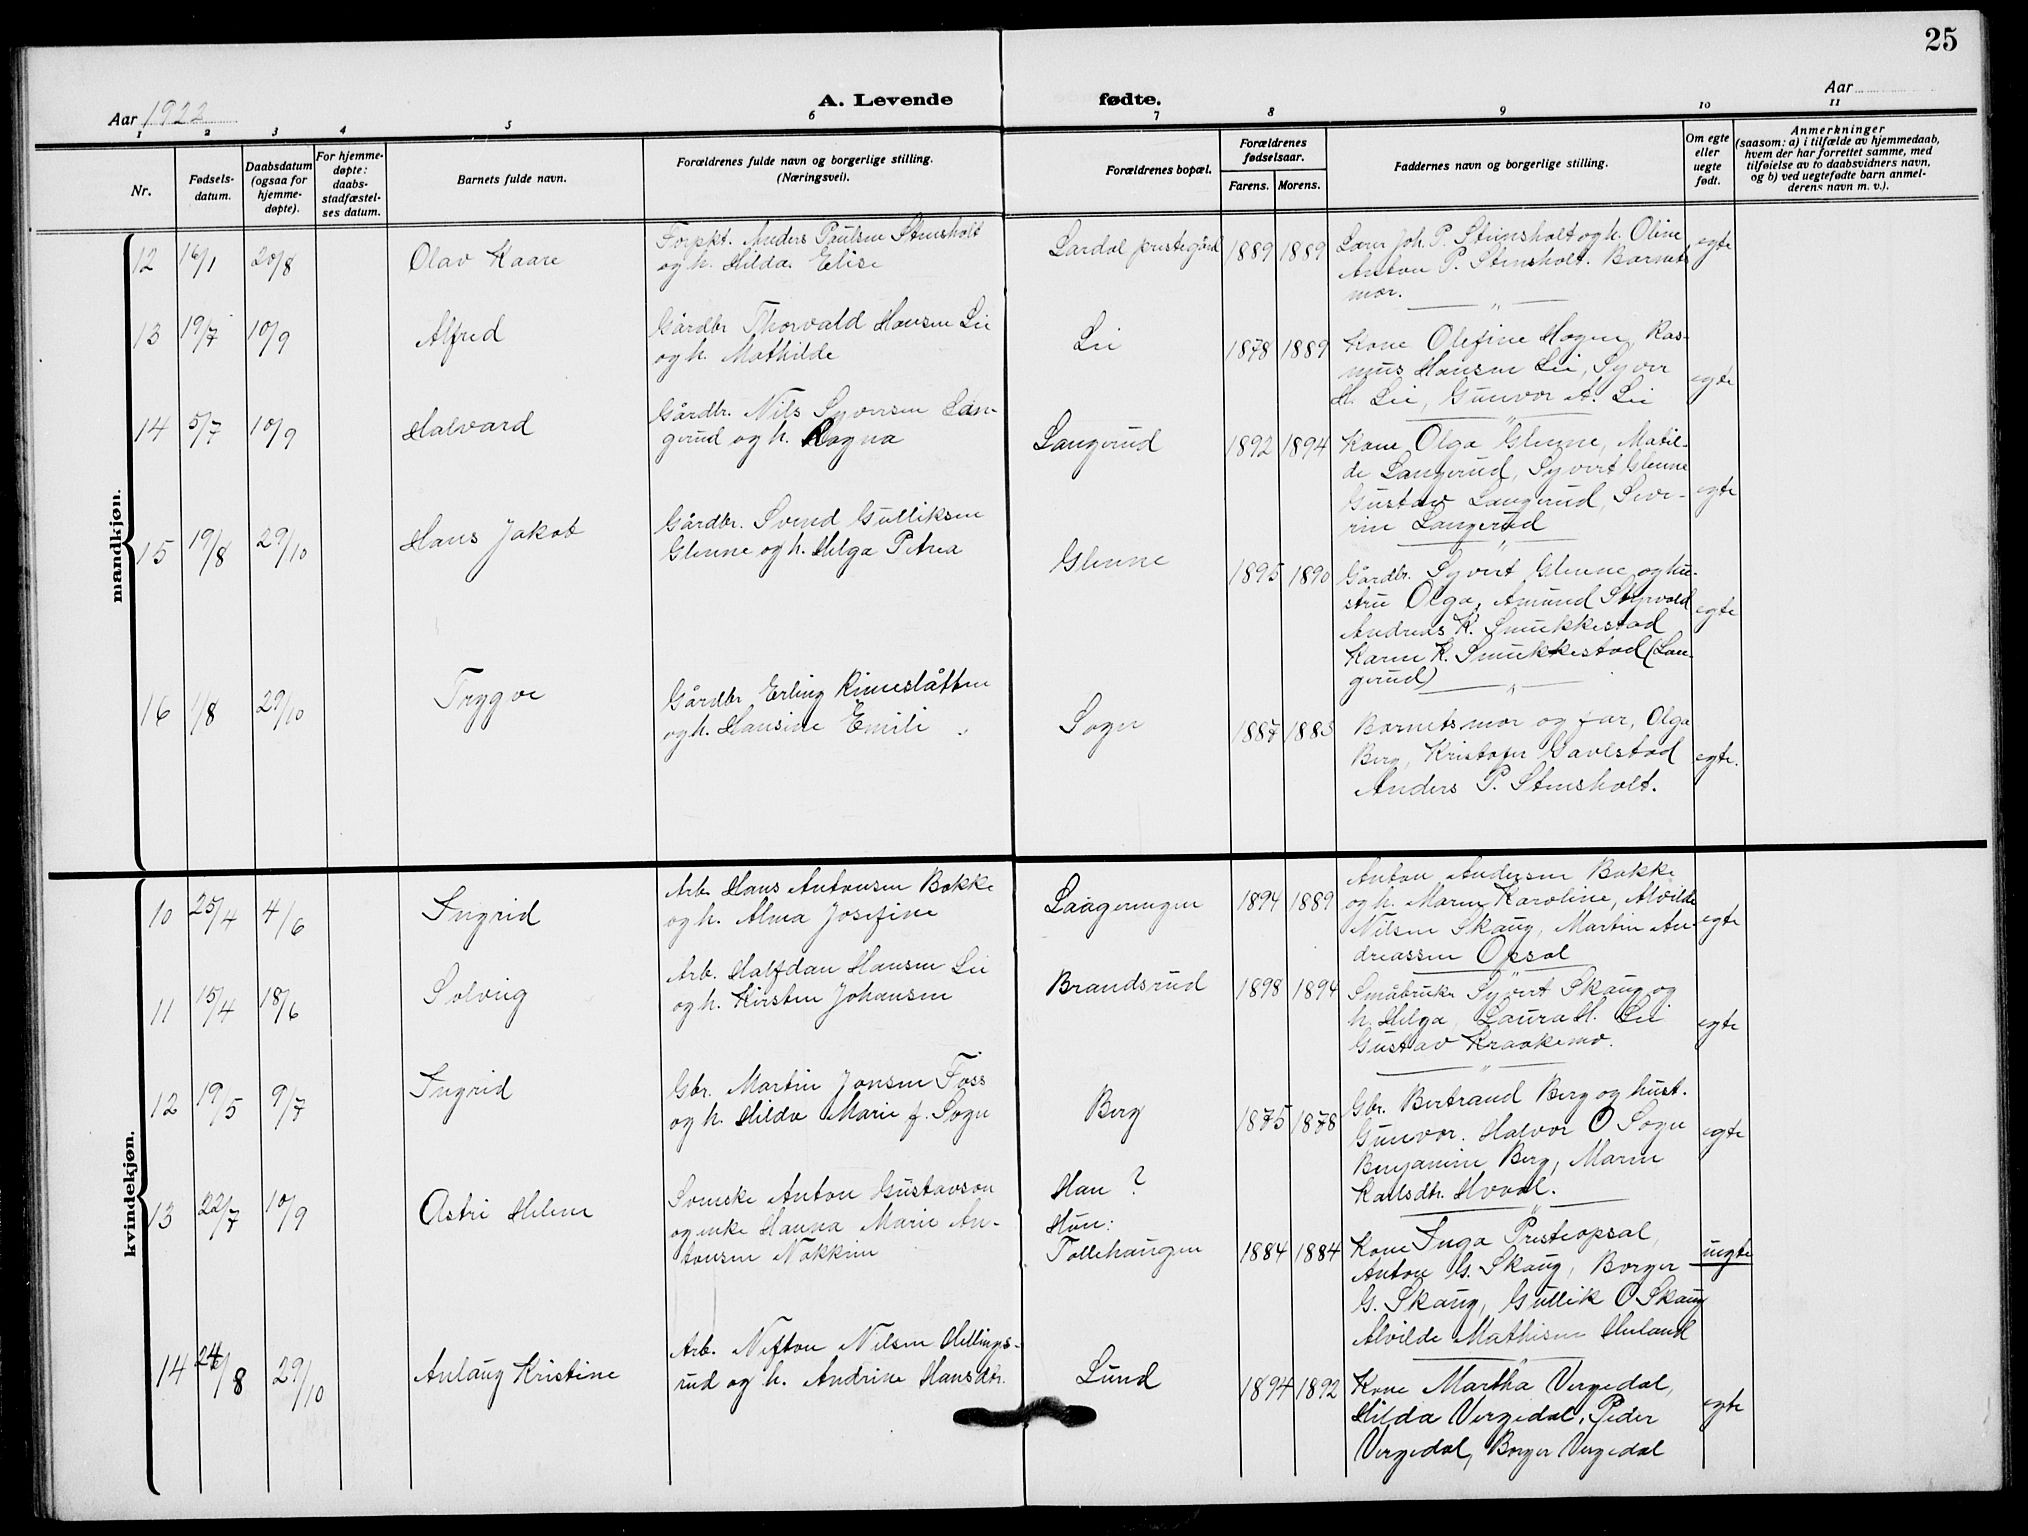 25
A. Levende fødte.
Aar 1922
Aar
1 2 3 4 5 6 7 8 9 10 11
Nr.
Fødsels-
datum.
Daabsdatum
(ogsaa for
hjemme-
døpte).
For hjemme-
døpte:
daabs-
stadfæstel-
ses datum.
Barnets fulde navn.
Forældrenes fulde navn og borgerlige stilling.
(Næringsvei).
Forældrenes bopæl.
Forældrenes
fødselsaar.
Farens. Morens.
Faddernes navn og borgerlige stilling.
Om egte
eller
uegte
født.
Anmerkninger
(saasom: a) i tilfælde av hjemmedaab,
hvem der har forrettet samme, med
tilføielse av to daabsvidners navn,
og b) ved uegtefødte barn anmel-
derens navn m. v.).
mandkjøn.
12 16/1 20/8 Olav Kaare
Forpkt. Anders Paulsen Stensholt
og h. Hilda Elise
Lardal prestegård 1889 1889
Lærer Joh. P. Stensholt og h. Oline
Anton P. Stensholt. Barnets
mor.
egte
13 19/7 10/9 Alfred
Gårdbr. Thorvald Hansen Lie
og h. Mathilde
Lie 1878 1889
Kone Olefine Hagen, Ras-
mus Hansen Lie, Syver
H. Lie, Gunvor A. Lie
egte
14 5/7 10/9 Halvard
Gårdbr. Nils Syversen Lan-
gerud og h. Ragna
Langerud 1892 1894
Kone Olga Glenne, Matil-
de Langerud, Syvert Glenne
Gustav Langerud, Seve-
rin Langerud
egte
15 19/8 29/10 Hans Jakob
Gårdbr. Svend Gulliksen
Glenne og h. Helga Petrea
Glenne 1895 1890
Gårdbr. Syvert Glenne og hu-
stru Olga, Amund Styrvold
Andreas K. Smukkestad
Karen K. Smukkestad (Lan-
gerud)
egte
16 1/8 29/10 Trygve
Gårdbr. Erling Rimeslåtten
og h. Hansine Emili
Sogn 1887 1885
Barnets mor og far, Olga
Berg, Kristofer Gavlstad
Anders P. Stensholt.
egte.
kvindekjøn.
10 25/4 4/6 Ingrid
Arb. Hans Antonsen Bakke
og h. Alma Josefine
Laageringen 1894 1889
Anton Andersen Bakke
og h. Maren Karoline, Alvilde
Nilsen Skaug, Martin An-
dreassen Opsal
egte
11 15/4 18/6 Solveig
Arb. Halfdan Hansen Lie
og h. Kirsten Johansen
Brandsrud 1898 1894
Småbruker Syvert Skaug og
h. Helga, Laura H. Lie
Gustav Kraakemo.
egte
12 19/5 9/7 Ingrid
Gbr. Martin Jonsen Foss
og h. Hilda Marie f. Sogn
Berg 1875 1878
Gbr. Bertrand Berg og hust.
Gunvor. Halvor O Sogn
Benjamin Berg, Maren
Karlsdtr. Hvaal.
egte
13 22/7 10/9 Astri Helene
Svenske Anton Gustavson
og enke Hanna Marie An-
tonsen Nakkim
Han ?
Hun:
Tollehaugen 1884 1884
Kone Inga Presteopsal,
Anton G. Skaug, Borger
G. Skaug, Gullik O Skaug
Alvilde Mathisen Huland
uegte
14 24/8 29/10 Anlaug Kristine
Arb. Nefton Nilsen Hellings-
rud og h. Andrine Hansdtr.
Lund 1894 1892
Kone Martha Vergedal,
Hilda Vergedal, Peder
Vergedal, Borger Vergedal
egte